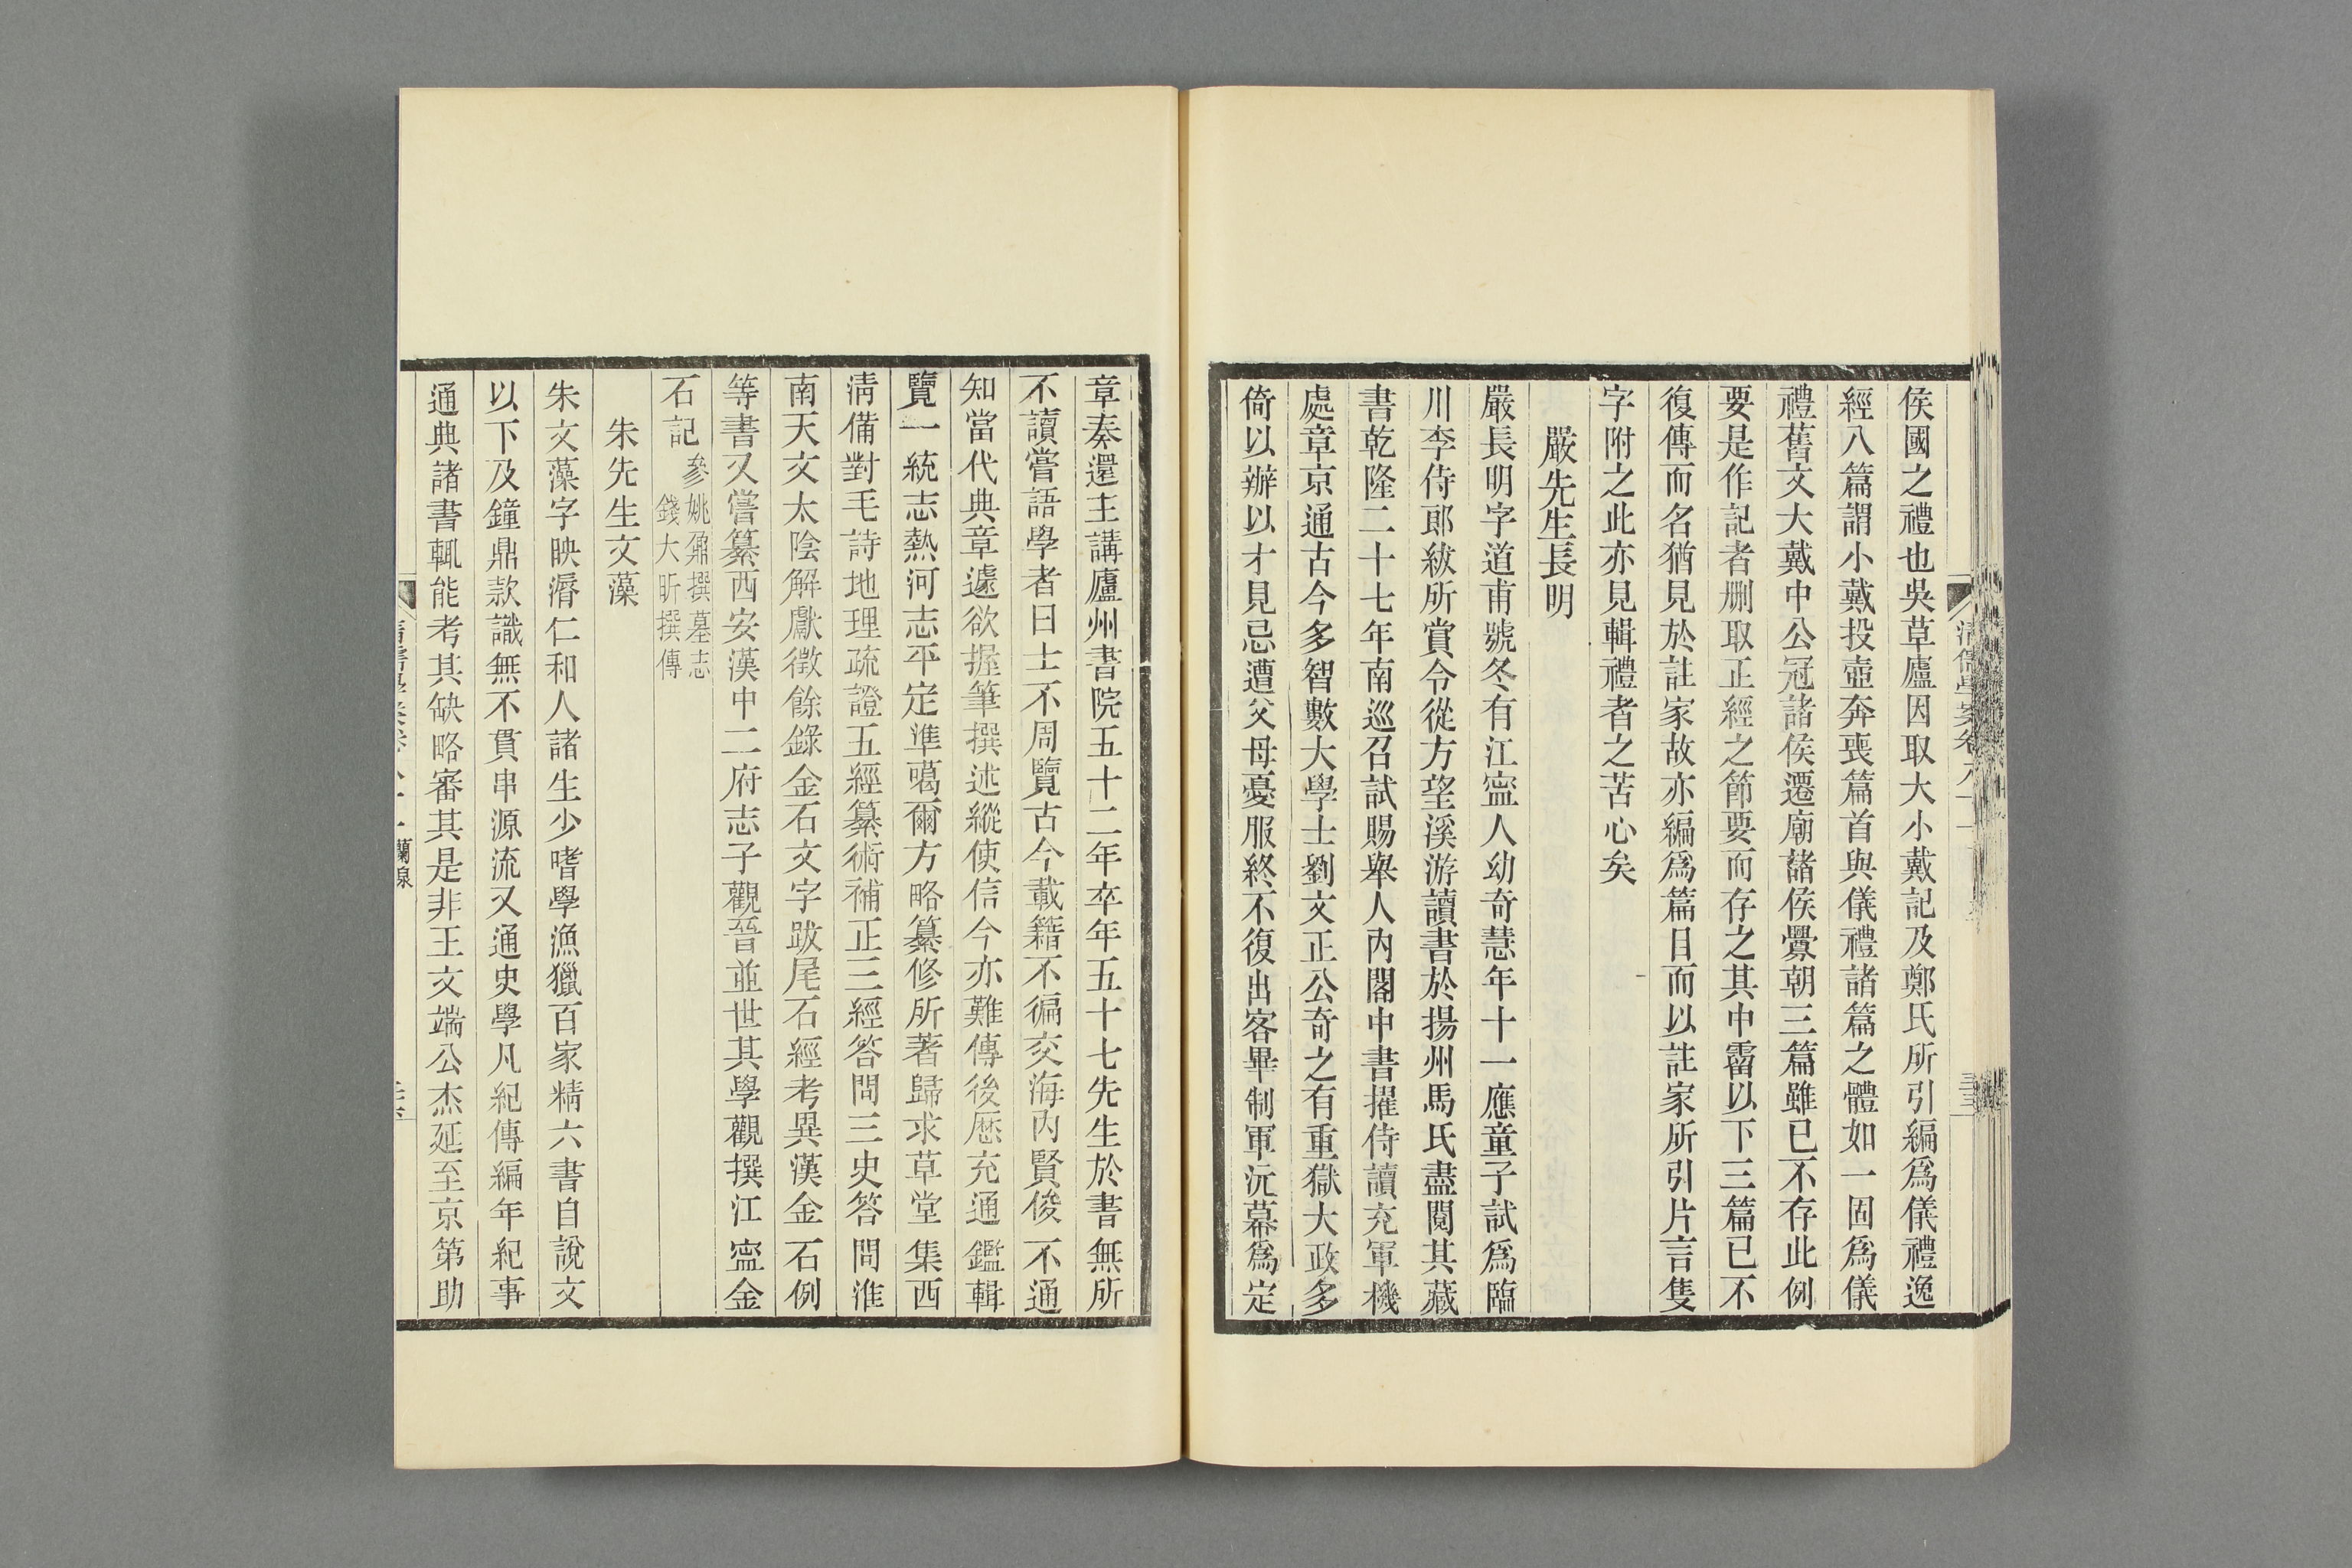 侯國之禮也吳草廬因取大小戴記及鄭氏所引編爲儀禮逸
經八篇謂小戴投壺奔喪篇首與儀禮諸篇之體如一固爲儀
禮舊文大戴中公冠諸侯遷廟諸侯釁朝三篇雖已不存此例
要是作記者刪取正經之節要而存之其中霤以下三篇已不
復傳而名猶見於註家故亦編爲篇目而以註家所引片言隻
字附之此亦見輯禮者之苦心矣
嚴先生長明
嚴長明字道甫號冬有江寍人幼奇慧年十一應童子試爲臨
川李侍郎紱所賞令從方望溪游讀書於揚州馬氏盡閱其藏
書乾隆二十七年南巡召試賜舉人內閣中書擢侍讀充軍機
處章京通古今多智數大學士劉文正公奇之有重獄大政多
倚以辦以才見忌遭父母憂服終不復出客畢制軍沅幕爲定
章奏還主講廬州書院五十二年卒年五十七先生於書無所
不讀嘗語學者曰士不周覽古今載籍不徧交海內賢俊不通
知當代典章遽欲握筆撰述縱使信今亦難傳後歷充通鑑輯
覽一統志熱河志平定準噶爾方略纂修所著歸求草堂集西
淸備對毛詩地理疏證五經纂術補正三經答問三史答問淮
南天文太陰解獻徵餘錄金石文字跋尾石經考異漢金石例
等書又嘗纂西安漢中二府志子觀晉並世其學觀撰江寍金
石記
參姚鼐撰墓志
錢大昕撰傳
朱先生文藻
朱文藻字映漘仁和人諸生少嗜學漁獵百家精六書自說文
以下及鐘鼎款識無不貫串源流又通史學凡紀傳編年紀事
通典諸書輒能考其缺略審其是非王文端公杰延至京第助